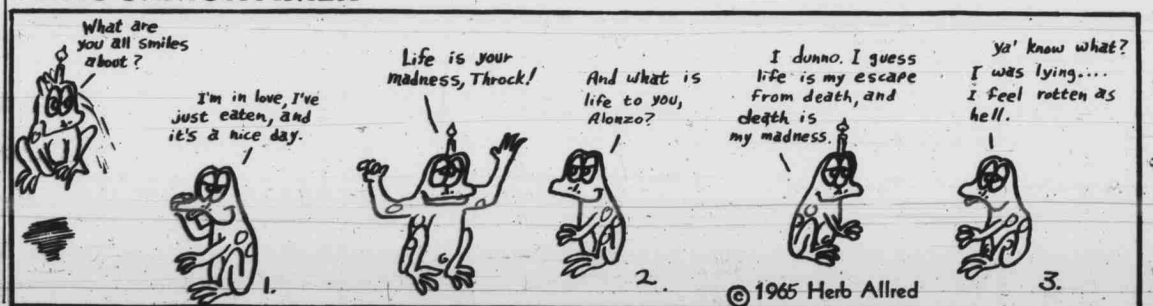 What are
you all smiles
about?
I'm in love, I've
just eaten, and
it's a nice day.
1.
Life is your
madness, Throck!
And what is
life to you,
Alonzo?
2.
I dunno. I guess
life is my escape
from death, and
death is
my madness.
ya' know what?
I was lying....
I feel rotten as
hell.
3.
© 1965 Herb Allred